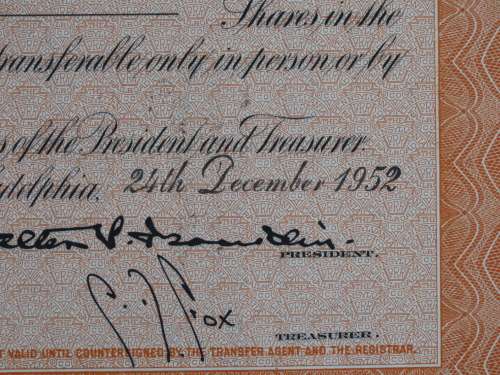 Shares in the
transferable only in person or by
of the President and Treasurer
24th December 1952
Walter S. Franklin.
PRESIDENT.
Fox
TREASURER.
VALID UNTIL COUNTERSIGNED BY THE TRANSFER AGENT AND THE REGISTRAR.